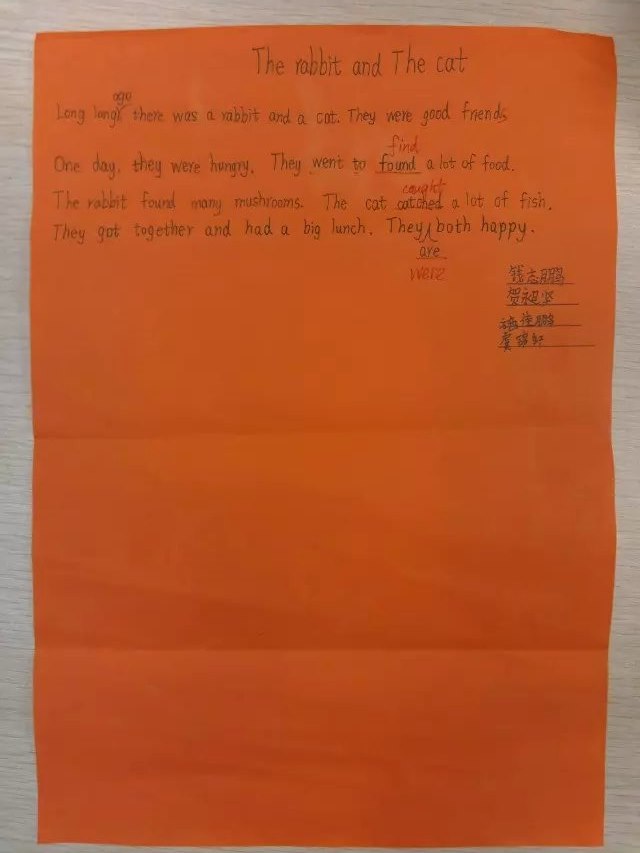 The rabbit and The cat
ago
Long long there was a rabbit and a cat. They were good friends
find
One day, they were hungry. They went to found a lot of food.
caught
The rabbit found many mushrooms. The cat catched a lot of fish.
They got together and had a big lunch. They both happy.
are
were
钱志鹏
贺昶坚
施佳鹏